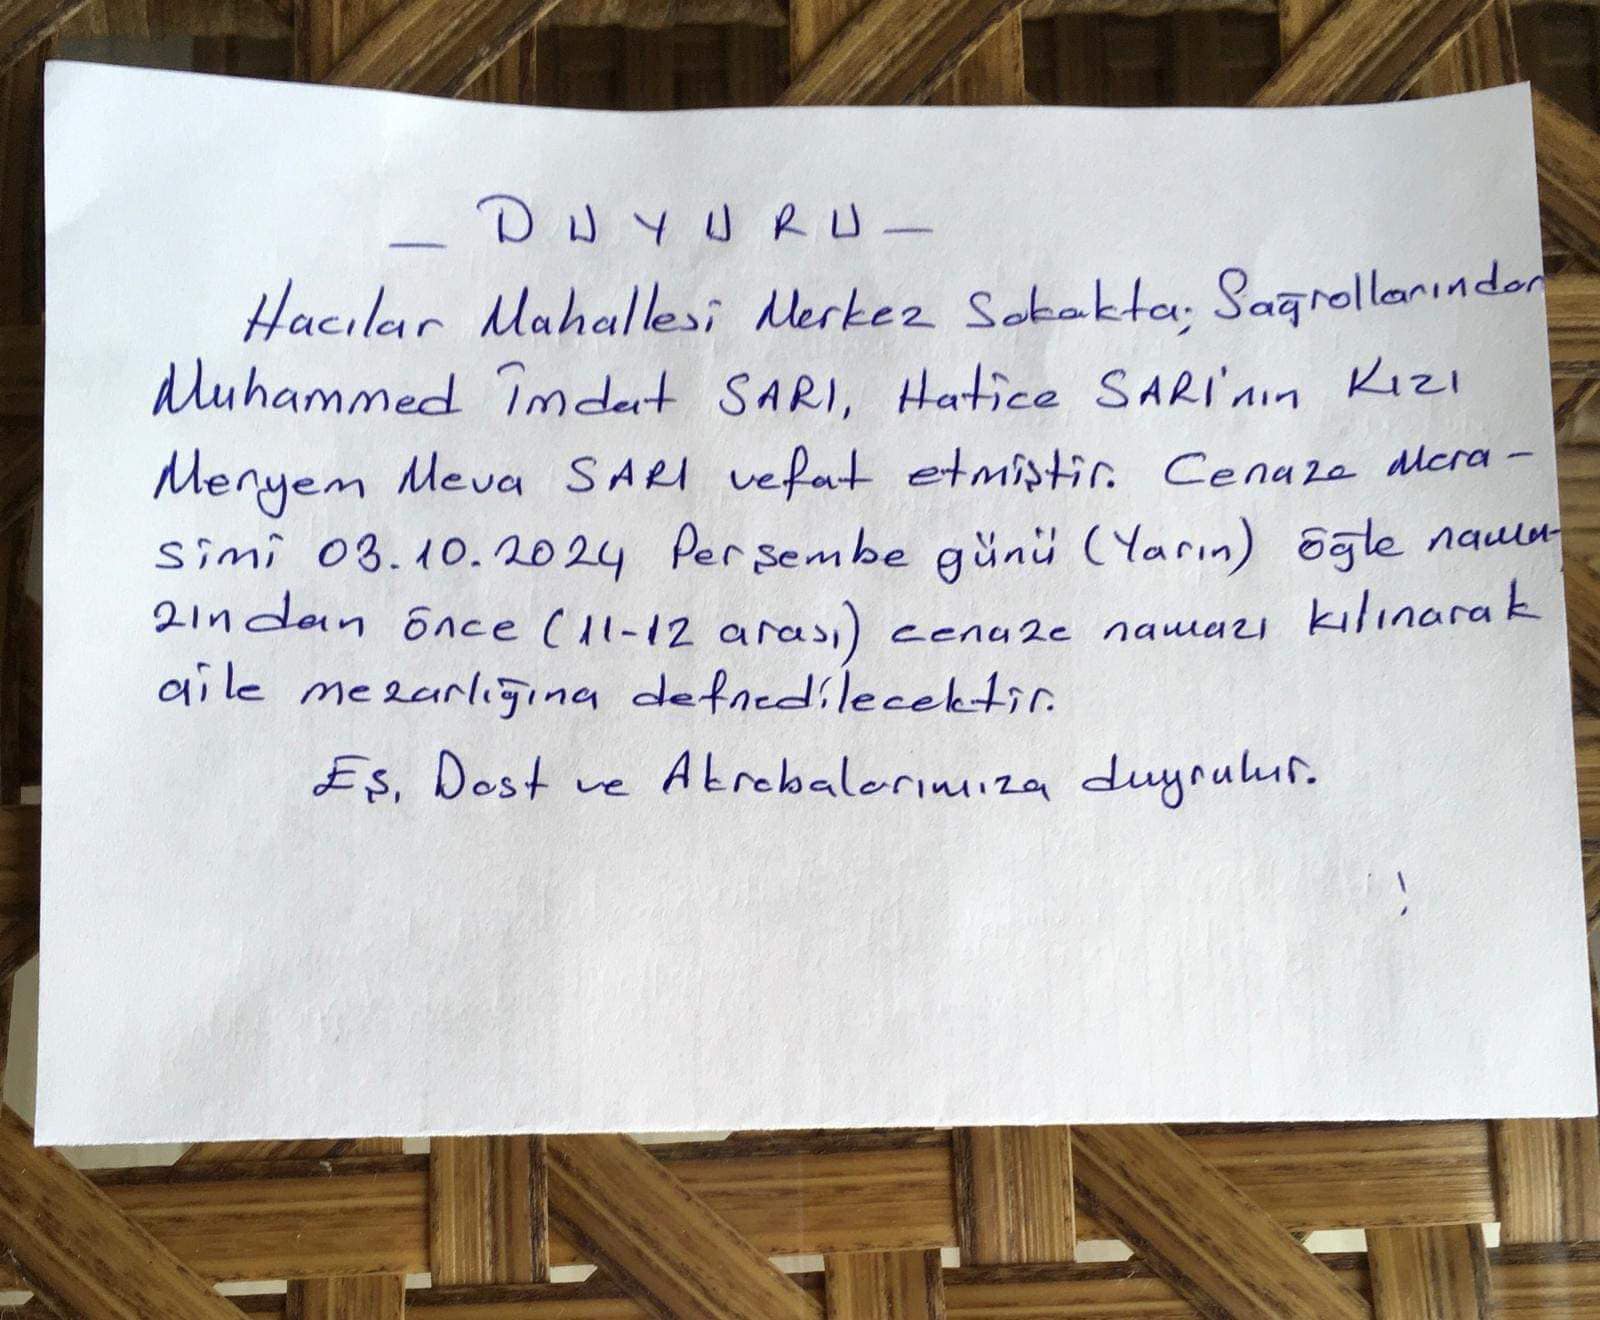 _ D U Y U R U _
Hacılar Mahallesi Merkez Sokakta; Sağrollarından
Muhammed İmdat SARI, Hatice SARI'nın Kızı
Meryem Meva SARI vefat etmiştir. Cenaze Mera-
simi 03.10.2024 Perşembe günü (Yarın) öğle nama-
zından önce (11-12 arası) cenaze namazı kılınarak
aile mezarlığına defnedilecektir.
Eş, Dost ve Akrabalarımıza duyrulur.
!